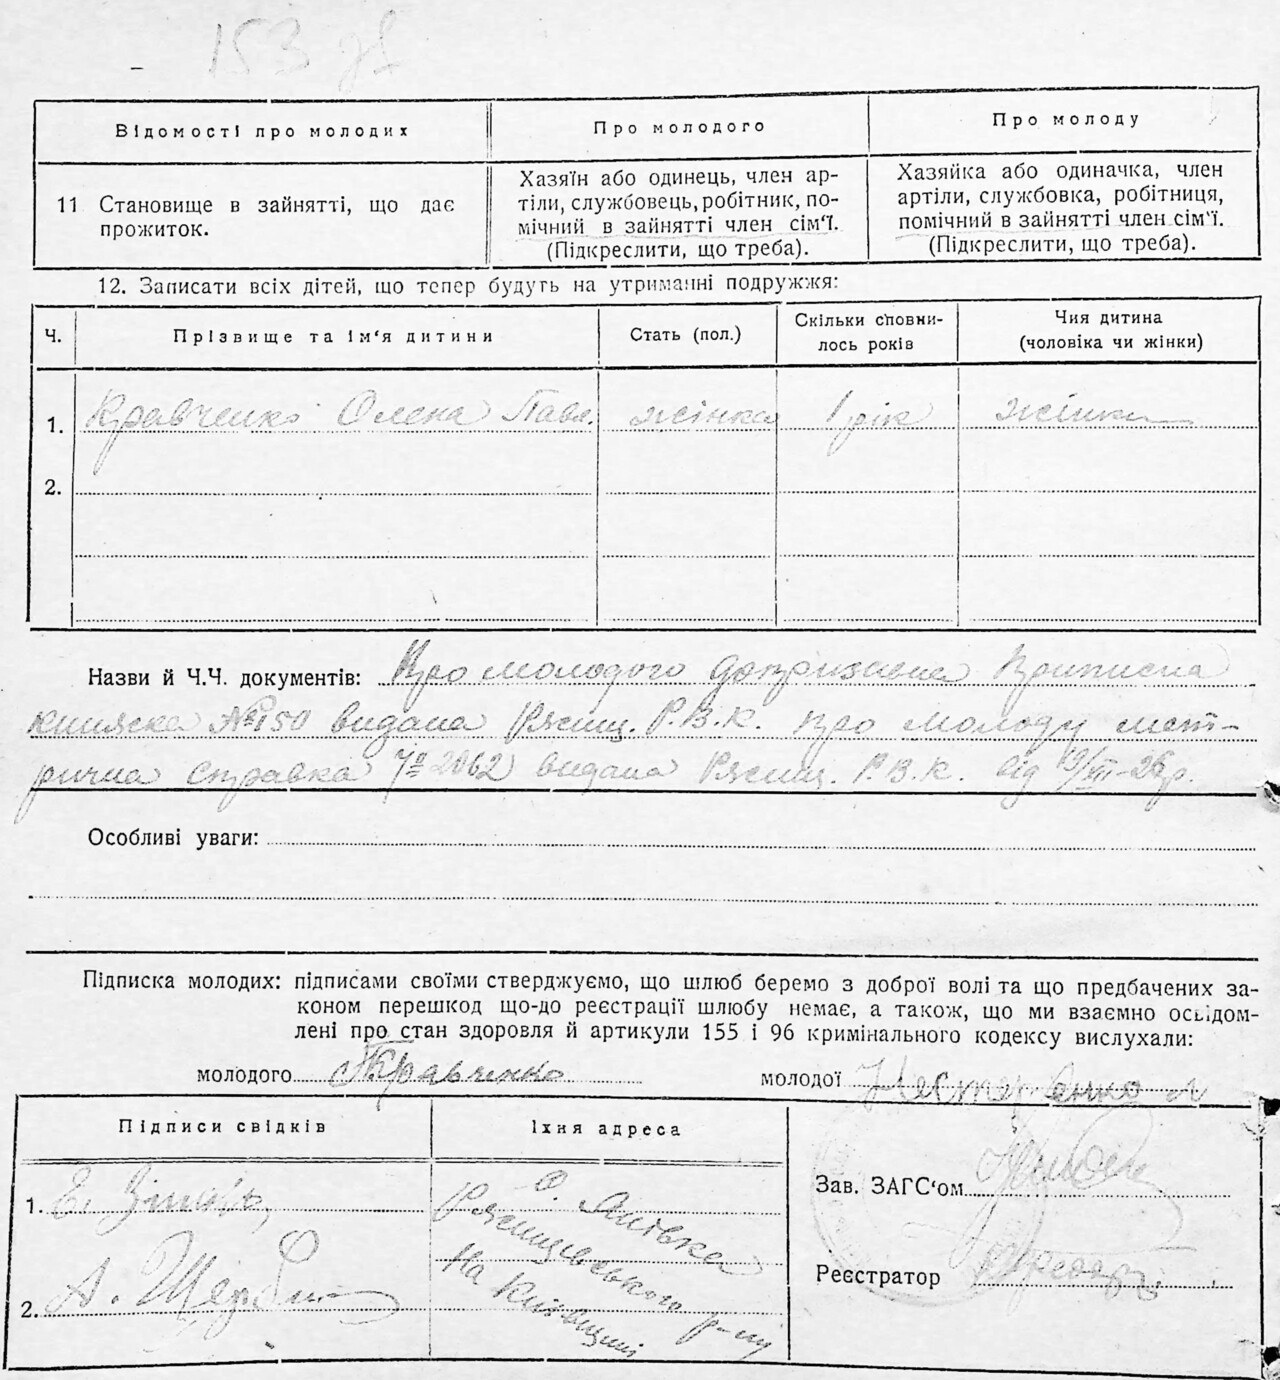 153
Відомості про молодих
Про молодого
Про молоду
11 Становище в зайнятті, що дає
прожиток.
Хазяїн або одинець, член ар-
тіли, службовець, робітник, по-
мічний в зайнятті член сім'ї.
(Підкреслити, що треба).
Хазяйка або одиначка, член
артіли, службовка, робітниця,
помічний в зайнятті член сім'ї.
(Підкреслити, що треба).
12. Записати всіх дітей, що тепер будуть на утриманні подружжя:
Ч.
Прізвище та ім'я дитини
Стать (пол.)
Скільки сповни-
лось років
Чия дитина
(чоловіка чи жінки)
1. Кравченко Олена Павл. жінка 1 рік жінки
2.
Назви й Ч.Ч. документів: Про молодого допризивна Приписна
книжка №150 видана Ржищ. Р.В.К. про молоду мет-
рична справка № 2062 видана Ржищ. Р.В.К. від 19/VII-26р.
Особливі уваги:
Підписка молодих: підписами своїми стверджуємо, що шлюб беремо з доброї волі та що предбачених за-
коном перешкод що-до реєстрації шлюбу немає, а також, що ми взаємно освідом-
лені про стан здоровля й артикули 155 і 96 кримінального кодексу вислухали:
молодого П Кравченко молодої Нестеренко
Підписи свідків
Їхня адреса
1. Е.
2. А. Щерб
с. Янівка
Ржищівського р-ну
На Київщині
Зав. ЗАГС'ом
Реєстратор